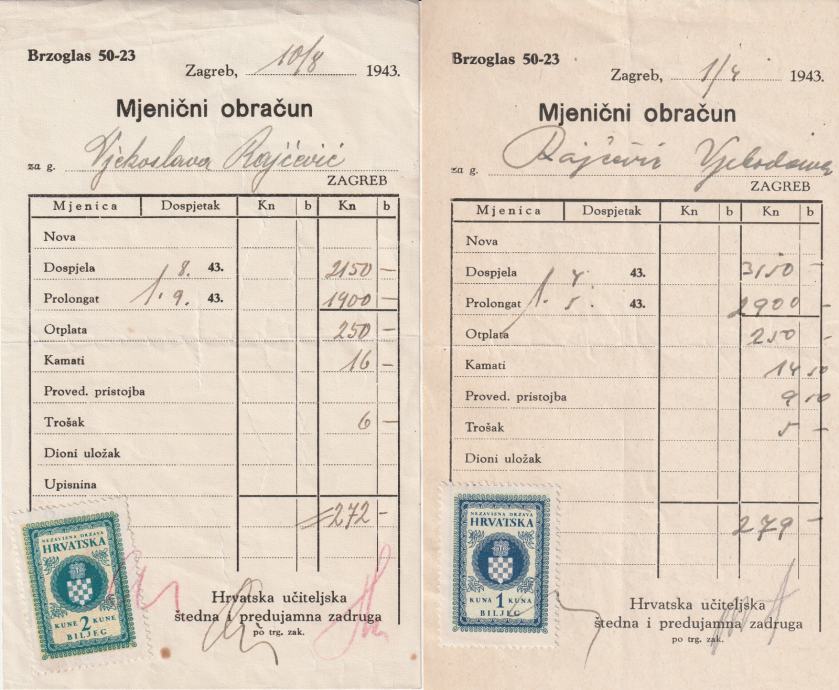 Brzoglas 50-23
Zagreb, 10/8 1943.
Mjenični obračun
za g. Vjekoslava Rajčević
ZAGREB
Mjenica Dospjetak Kn b Kn b
Nova
Dospjela 8. 43. 2150 —
Prolongat 1. 9. 43. 1900 —
Otplata 250 —
Kamati 16 —
Proved. pristojba
Trošak 6 —
Dioni uložak
Upisnina
272 —
NEZAVISNA DRŽAVA
HRVATSKA
KUNE 2 KUNE
BILJEG
Hrvatska učiteljska
štedna i predujamna zadruga
po trg. zak.
Brzoglas 50-23
Zagreb, 1/4 1943.
Mjenični obračun
za g. Rajčević
ZAGREB
Mjenica Dospjetak Kn b Kn b
Nova
Dospjela 4. 43. 3150 —
Prolongat 1. 5. 43. 2900 —
Otplata 250 —
Kamati 14 50
Proved. pristojba 9 50
Trošak 5 —
Dioni uložak
279 —
NEZAVISNA DRŽAVA
HRVATSKA
KUNA 1 KUNA
BILJEG
Hrvatska učiteljska
štedna i predujamna zadruga
po trg. zak.